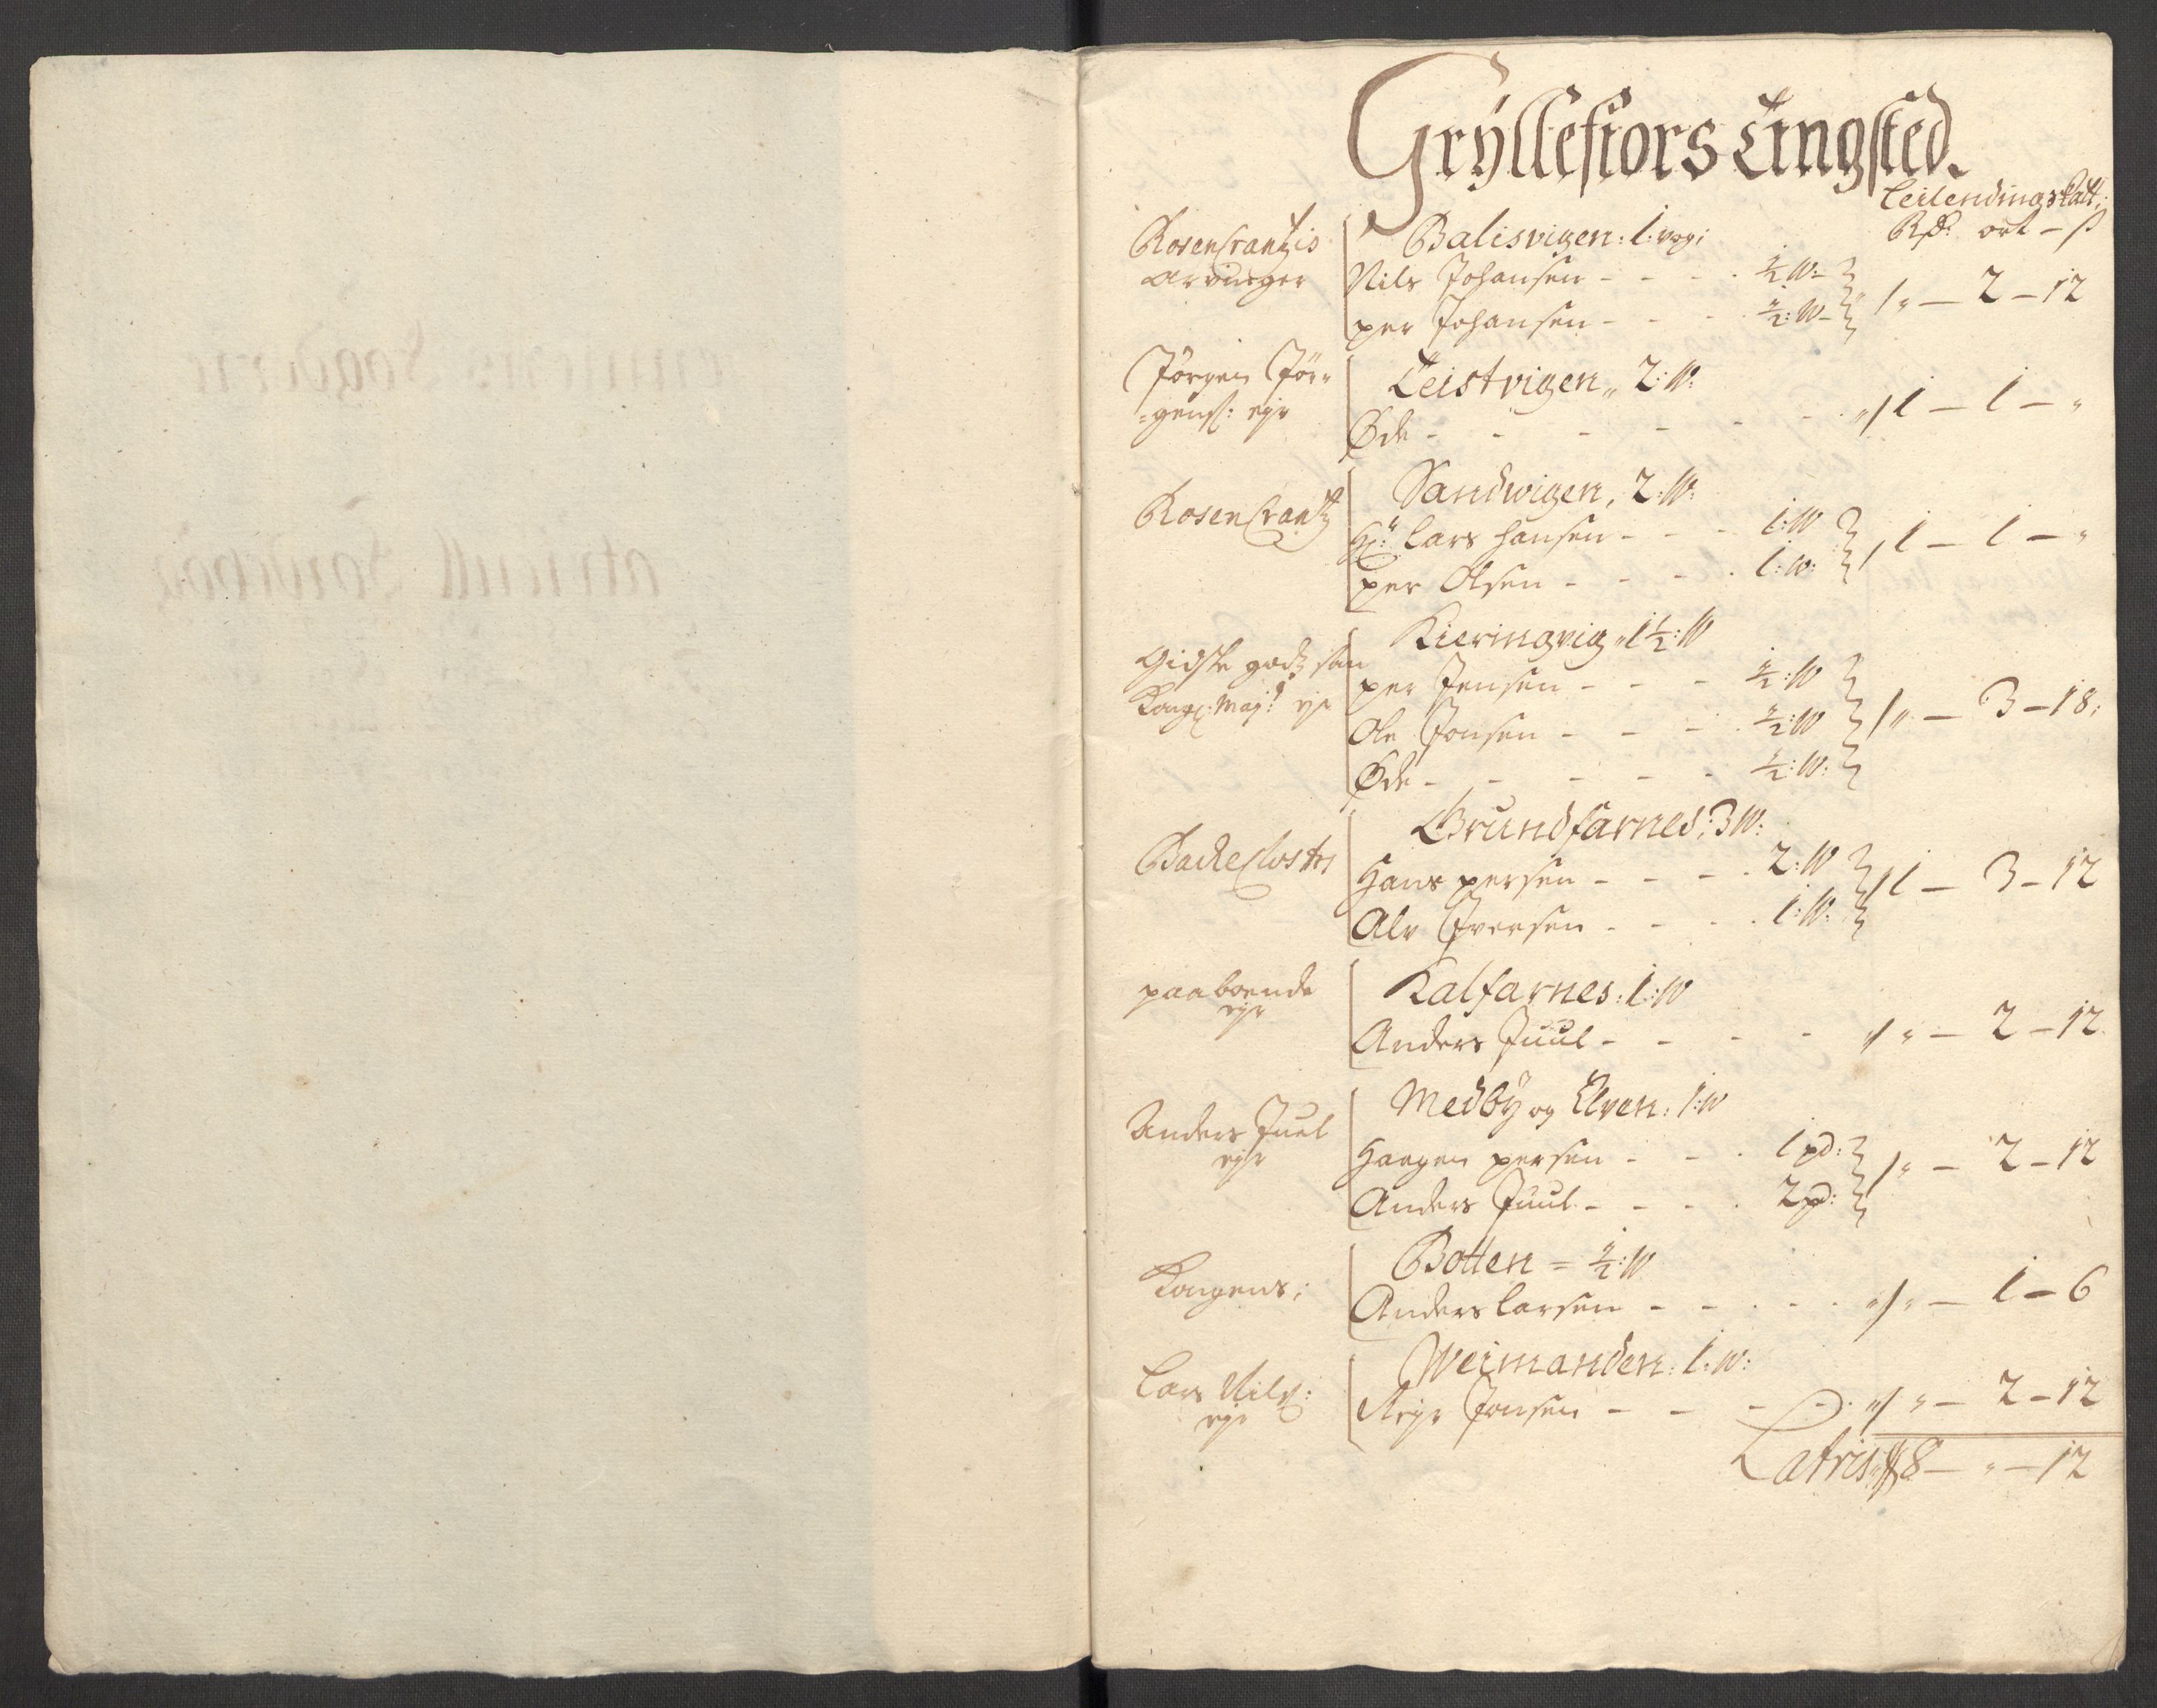 Gryllefiors Tingsted.
Leilendingskatt;
Rdr: ort - ß
RosenCrantzis Arvinger
Balisvigen: 1: vog;
Nils Johansen - - - - ½ W:
per Johansen - - - - ½: W - " - 2 - 12
Jørgen Jør=
=gens: ejer
Leistvigen " 2: W:
Øde - - - - - - 1 - 1 - "
RosenCrantz
Sandwigen, 2: W:
Hr: Lars Hansen - - - 1: W
per Olsen - - - - 1: W: 1 - 1 - "
Gidske godz som
Kongl: Maj: ejer
Kieringvig " 1½: W
per Jensen - - - ½: W
Ole Jonsen - - - ½: W " - 3 - 18;
Øde - - - - - ½: W:
BackeCloster
Grundfarnes; 3 W:
Hans persen - - - - 2: W
Alv Iversen - - - - 1: W: 1 - 3 - 12
paaboende
ejer
Kalfarnes: 1: W
Anders Juul - - - - " - 2 - 12
Anders Juel
ejer
Medby og Elven: 1: W
Haagen persen - - - 1 pd:
Anders Juul - - - - 2 pd: " - 2 - 12
Kongens;
Botten = ½: W
Anders Larsen - - - - - " - 1 - 6
Lars Nils:
ejer
Weimanden: 1: W:
Reier Jonsen - - - - " - 2 - 12
Latris 8 - " - 12